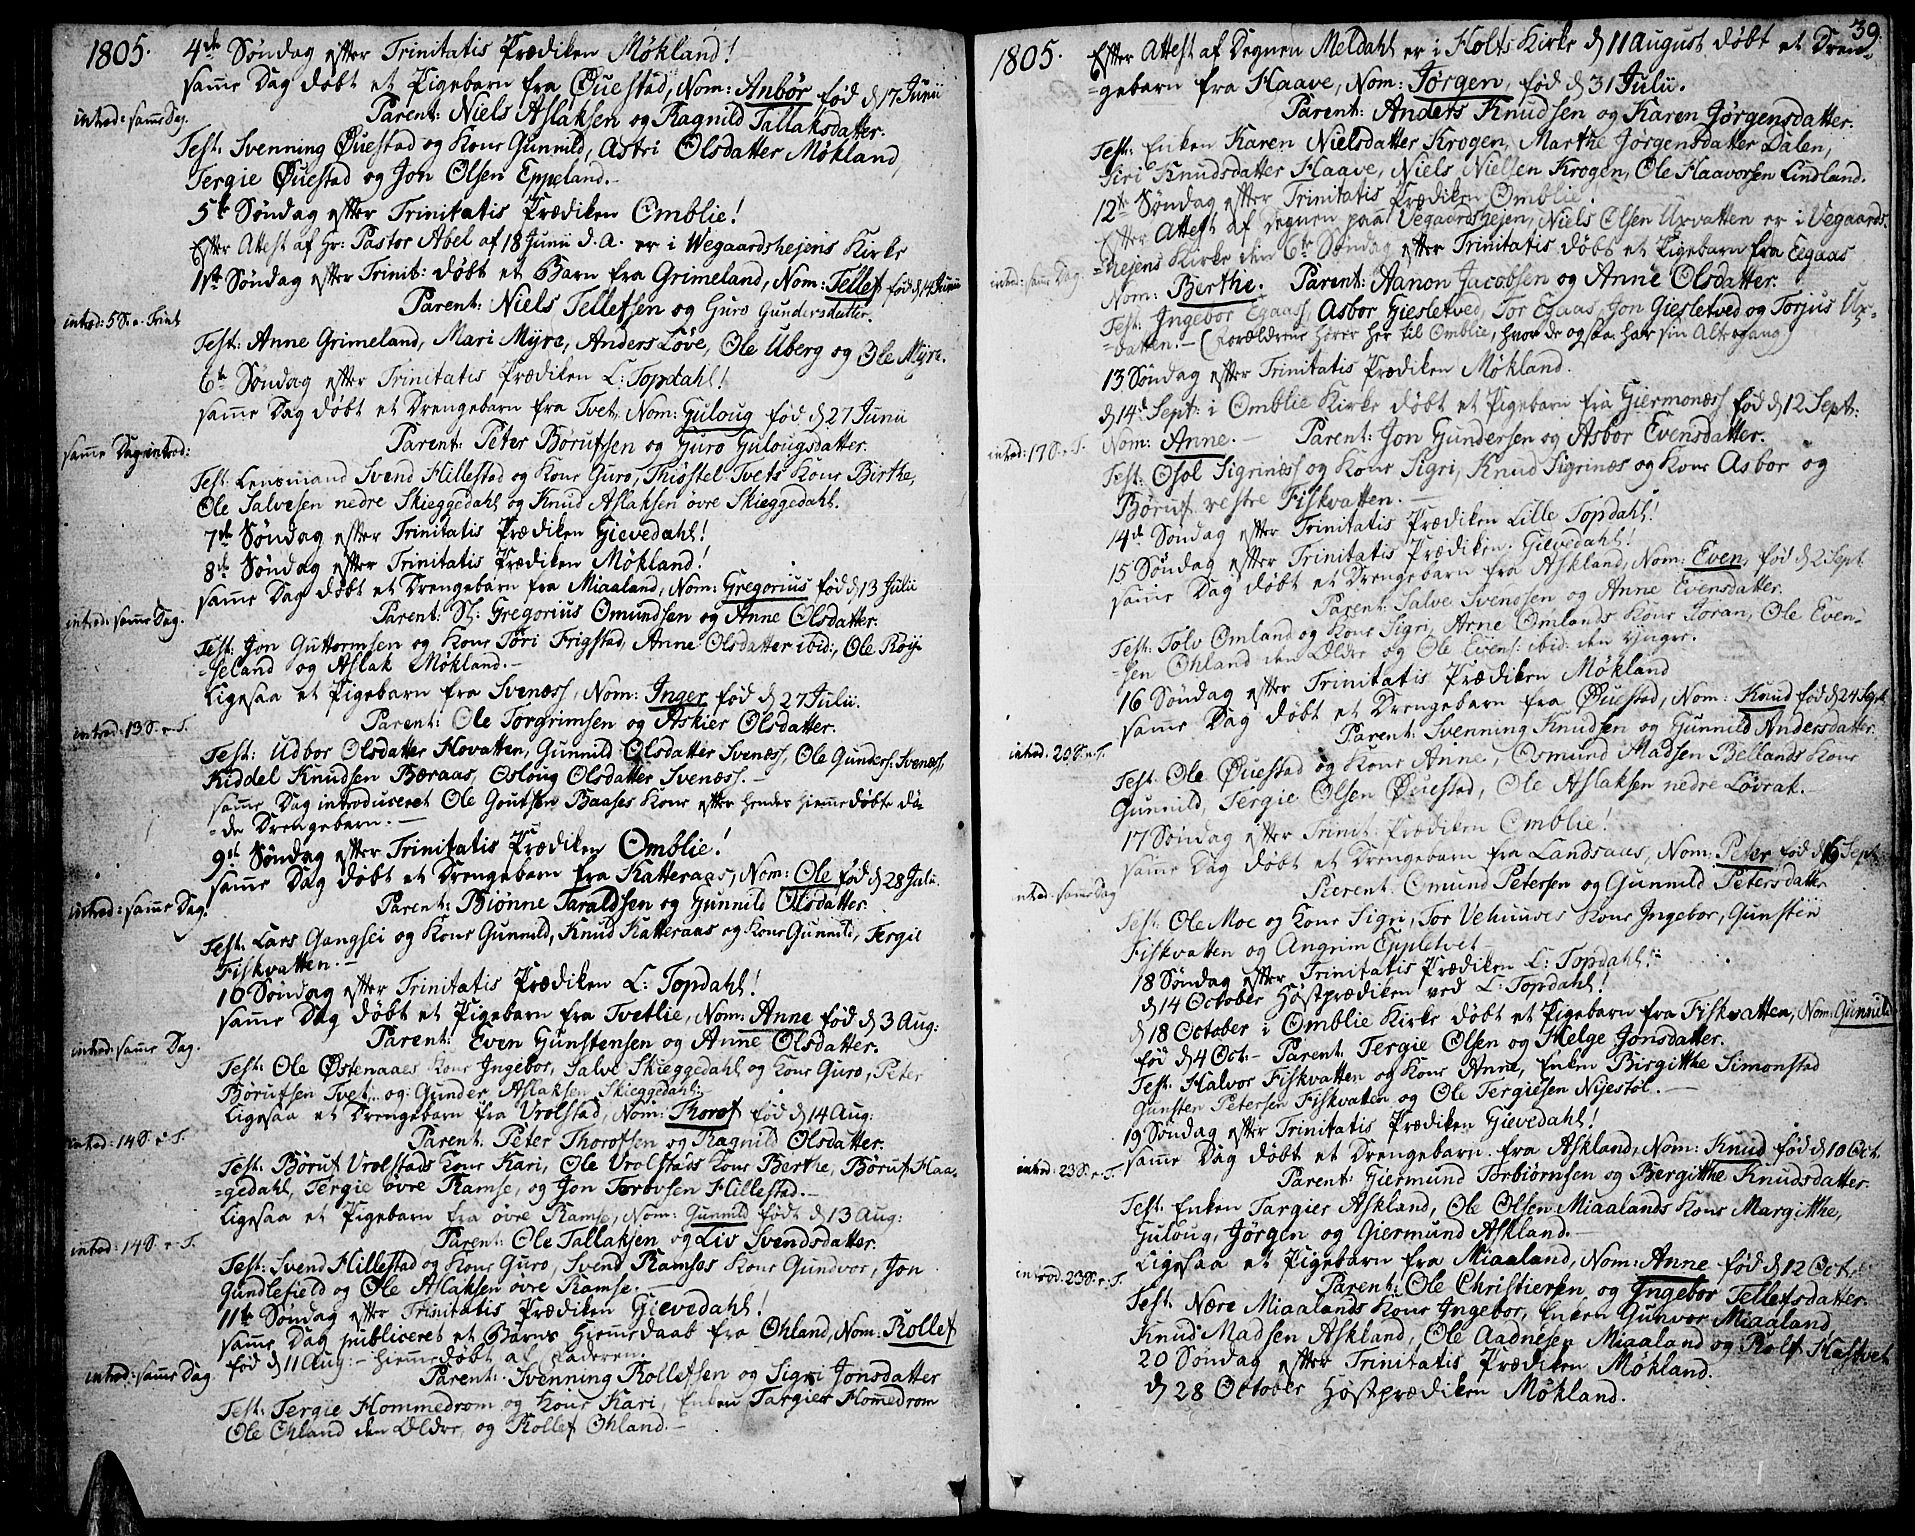 1805. 4de Søndag efter Trinitatis Prædiken Møkland!
samme Dag døbt et Pigebarn fra Øuestad, Nom: Anbør fød d 17 Junii
introd: samme Dag.
Parent: Niels Aslaksen og Ragnild Tallaksdatter.
Test: Svenning Øuestad og Kone Gunnild, Astri Olsdatter Møkland,
Tergie Øuestad og Jon Olsen Eppeland.
5te Søndag efter Trinitatis Prædiken Omblie!
Efter Attest af Hr: Pastor Abel af 18 Junii d. A. er i Wegaardshejens Kirke
1ste Søndag efter Trinit: døbt et Barn fra Grimeland, Nom: Tellef fød d 14 Junii
introd: 5 S. e. Trinit
Parent: Niels Tellefsen og Guro Gundersdatter.
Test: Anne Grimeland, Mari Myre, Anders Løve, Ole Uberg og Ole Myre.
6te Søndag efter Trinitatis Prædiken L: Topdahl!
samme Dag døbt et Drengebarn fra Tvet, Nom: Guloug fød d 27 Junii
samme Dag introd:
Parent: Peter Børufsen og Guro Gulougsdatter.
Test: Lensmand Svend Hillestad og Kone Guro, Thostel Tvets Kone Birthe,
Ole Salvesen nedre Skieggedahl og Knud Aslaksen øvre Skieggedahl.
7de Søndag efter Trinitatis Prædiken Gievedahl!
8de Søndag efter Trinitatis Prædiken Møkland!
samme Dag døbt et Drengebarn fra Miaaland, Nom: Gregorius fød d 13 Julii
introd: samme Dag.
Parent: Sl: Gregorius Omundsen og Anne Olsdatter.
Test: Jon Guttormsen og Kone Tøri Frigstad, Anne Olsdatter ibid:, Ole Røij-
=seland og Aslak Møkland.
Ligesaa et Pigebarn fra Svenæss, Nom: Inger fød d 27 Julii.
introd: 13 S. e. T.
Parent: Ole Torgrimsen og Askier Olsdatter.
Test: Udbor Olsdatter Hovatten, Gunnild Olsdatter Svenæss, Ole Gunders: Svenæss,
Kiddel Knudsen Bæraas, Osloug Olsdatter Svenæss.
samme Dag introduceret Ole Goutsen Baases Kone efter hendes hiemmedøbte dø-
=de Drengebarn.
9de Søndag efter Trinitatis Prædiken Omblie!
samme Dag døbt et Drengebarn fra Katteraas, Nom: Ole fød d 28 Julii.
introd: samme Dag.
Parent: Biønne Taraldsen og Gunnild Olsdatter
Test: Lars Gangsei og Kone Gunnild, Knud Katteraas og Kone Gunnild, Tergie
Fiskvatten.
10 Søndag efter Trinitatis Prædiken L: Topdahl!
samme Dag døbt et Pigebarn fra Tvetlie, Nom: Anne fød d 3 Aug:
introd: samme Dag.
Parent: Even Gunstensen og Anne Olsdatter.
Test: Ole Østenaaes Kone Ingebor, Salve Skieggedahl og Kone Guro, Peter
Børufsen Tvet, og Gunder Aslaksen Skieggedahl.
Ligesaa et Drengebarn fra Vrolstad, Nom: Thorof fød d 14 Aug:
introd: 14 S. e. T.
Parent: Peter Thorofsen og Ragnild Olsdatter.
Test: Børuf Vrolstads Kone Kari, Ole Vrolstads Kone Berthe, Børuf Haa-
=gedahl, Tergie øvre Ramse, og Jon Torovsen Hillestad.
Ligesaa et Pigebarn fra øvre Ramse, Nom: Gunnild født d 13 Aug:
introd: 14 S. e. T.
Parent: Ole Tallaksen og Liv Svendsdatter.
Test: Svend Hillestad og Kone Guro, Svend Ramses Kone Gundvor, Jon
Gundlefield og Ole Aslaksen øvre Ramse.
11te Søndag efter Trinitatis Prædiken Gievedahl!
samme Dag publiceret et Barns Hiemmedaab fra Ohland, Nom: Rollef
fød d 11 Aug: hiemmedøbt af Faderen.
introd: samme Dag
Parent: Svenning Rollefsen og Sigri Jonsdatter
Test: Tergie Hommedrom og Kone Kari, Enken Targier Hommedrom
Ole Ohland den Ældre, og Rollef Ohland.
39.
1805. Efter Attest af Degnen Meldahl er i Holts Kirke d 11 August døbt et Dren-
=gebarn fra Haave, Nom: Jørgen, fød d 31 Julii.
Parent: Anders Knudsen og Karen Jørgensdatter.
Test: Enken Karen Nielsdatter Krogen, Marthe Jørgensdatter Dalen,
Siri Knudsdatter Haave, Niels Nielsen Krogen, Ole Haavorsen Lindland.
12te Søndag efter Trinitatis Prædiken Omblie!
Efter Attest af Degnen paa Vegaardshejen, Niels Olsen Uxvatten er i Vegaards-
=hejens Kirke den 6te Søndag efter Trinitatis døbt et Pigebarn fra Egaas
introd: samme Dag.
Nom: Berthe. Parent: Aanon Jacobsen og Anne Olsdatter.
Test: Ingebor Egaas, Asbor Giesletved, Tor Egaas, Jon Giesletved og Torjus Ux-
=vatten. (Forældrene hører her til Omblie, hvor de ogsaa har sin Altergang)
13 Søndag efter Trinitatis Prædiken Møkland.
d 14de Sept: i Omblie Kirke døbt et Pigebarn fra Giermonæss fød d 12 Sept:
introd: 17 S. e. T.
Nom: Anne. Parent: Jon Gundersen og Asbor Evensdatter.
Test: Osol Sigrinæss og Kone Sigri, Knud Sigrinæs og Kone Asbor og
Børuf vestre Fiskvatten.
14de Søndag efter Trinitatis Prædiken Lille Topdahl!
15 Søndag efter Trinitatis Prædiken Gievedahl!
samme Dag døbt et Drengebarn fra Askland, Nom: Even, fød d 2 Sept.
Parent: Salve Svendsen og Anne Evensdatter.
Test: Tolv Omland og Kone Sigri, Arne Omlands Kone Joran, Ole Even-
=sen Ohland den Ældre og Ole Evens: ibid: den Yngre.
16 Søndag efter Trinitatis Prædiken Møkland
samme Dag døbt et Drengebarn fra Øuestad, Nom: Knud fød d 24 Sept.
introd: 20 S. e. T.
Parent: Svenning Knudsen og Gunnild Andersdatter.
Test: Ole Øuestad og Kone Anne, Osmund Madsen Bellands Kone
Gunnild, Tergie Olsen Øuestad, Ole Aslaksen nedre Løvrak.
17 Søndag efter Trinit: Prædiken Omblie!
samme Dag døbt et Drengebarn fra Landsaas, Nom: Peter fød d 16 Sept
introd: samme Dag
Parent: Omund Petersen og Gunnild Petersdatter
Test: Ole Moe og Kone Sigri, Tor Vehuuses Kone Ingebor, Gunsten
Fiskvatten og Angrim Eppletvet
18 Søndag efter Trinitatis Prædiken L: Topdahl!
d 14 October Høstprædiken ved L: Topdahl!
d 18 October i Omblie Kirke døbt et Pigebarn fra Fiskvatten, Nom: Gunnild
fød d 4 Oct. Parent: Tergie Olsen og Helge Jonsdatter.
Test: Halvor Fiskvatten og Kone Anne, Enken Birgitthe Simonstad
Gunsten Petersen Fiskvatten og Ole Tergiesen Nyestøl.
19 Søndag efter Trinitatis Prædiken Gievedahl!
samme Dag døbt et Drengebarn fra Askland, Nom: Knud fød d 10 Oct.
introd: 23 S. e. T.
Parent: Giermund Torbiørnsen og Bergitthe Knudsdatter.
Test: Enken Targier Askland, Ole Olsen Miaalands Kone Margitthe,
Guloug, Jørgen og Giermund Askland.
Ligesaa et Pigebarn fra Miaaland, Nom: Anne fød d 12 Oct.
introd: 23 S. e. T.
Parent: Ole Christiersen og Ingebor Tellefsdatter.
Test: Nære Miaalands Kone Ingebor, Enken Gunvor Miaaland,
Knud Madsen Askland, Ole Aadnesen Miaaland og Rolf Hastvet
20 Søndag efter Trinitatis Prædiken Møkland.
d 28 October Høstprædiken Møkland.